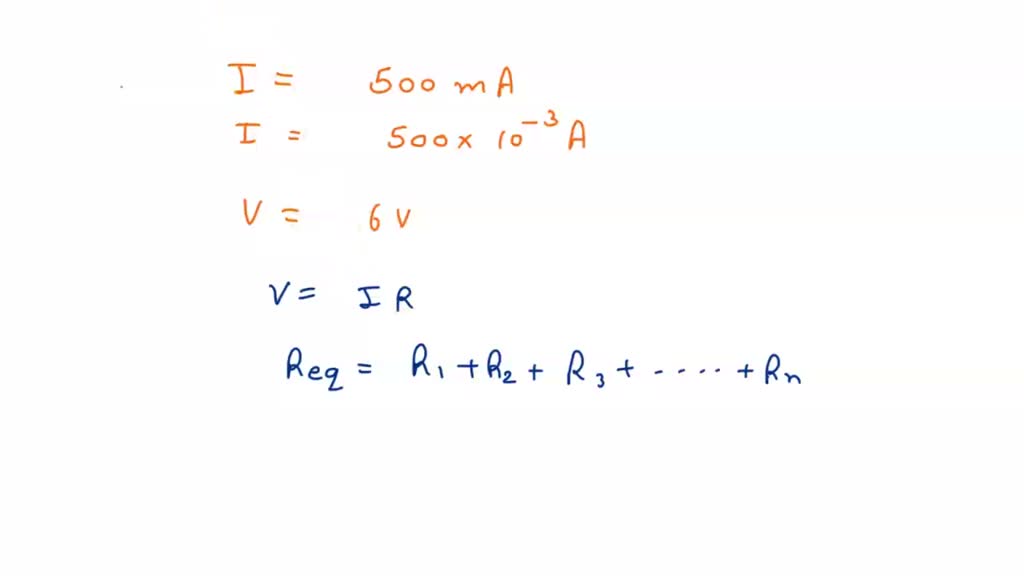 I = 500 mA
I = 500 × 10⁻³ A
V = 6 V
V = I R
Req = R₁ + R₂ + R₃ + ..... + Rn